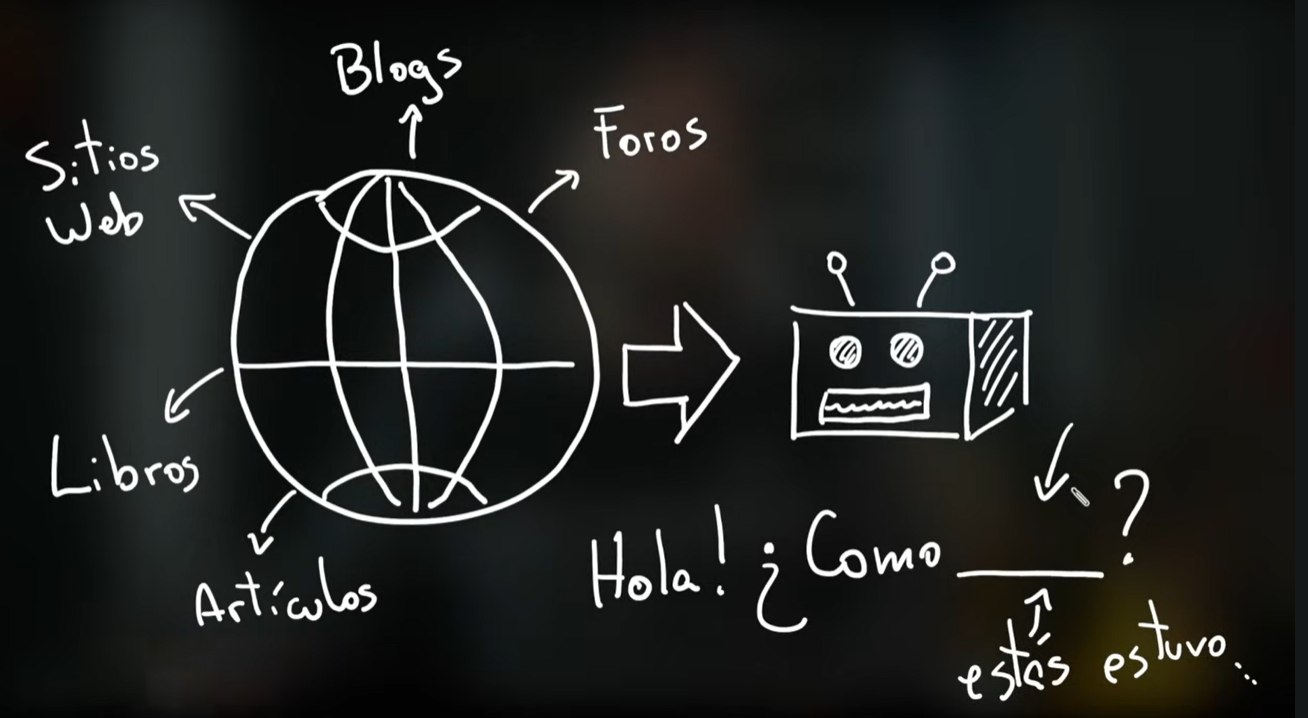 Blogs
Foros
Sitios
Web
Libros
Artículos
Hola! ¿Como ____?
estás estuvo...